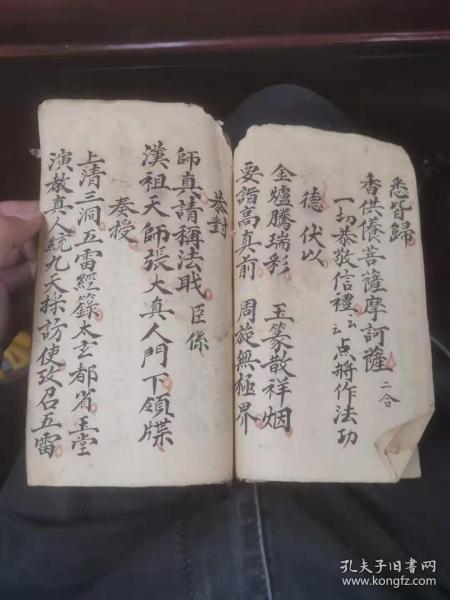 悉皆歸
香供養菩薩摩訶薩 二合
一切恭敬信禮云云点將作法功
德 伏以
金爐騰瑞彩 玉篆散祥烟
要詣高真前 周旋無極界
恭對
師真請稱法職臣係
漢祖天師張大真人門下領牒
奏授
上清三洞五雷經籙太玄都省玉堂
演教真人統九天採訪使攷召五雷
孔夫子旧書网
www.kongfz.com